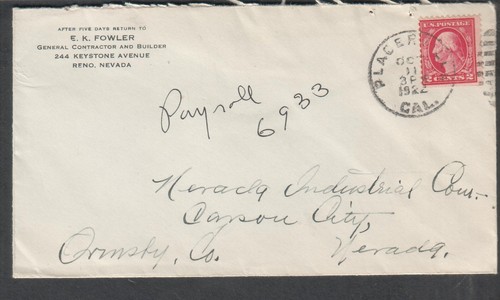 AFTER FIVE DAYS RETURN TO
E. K. FOWLER
GENERAL CONTRACTOR AND BUILDER
244 KEYSTONE AVENUE
RENO, NEVADA
U.S. POSTAGE
2 CENTS 2
PLACER
OCT
11
3 P
1922
CAL.
Payroll
6933
Nevada Industrial Com.
Carson City,
Ormsby, Co. Nevada.